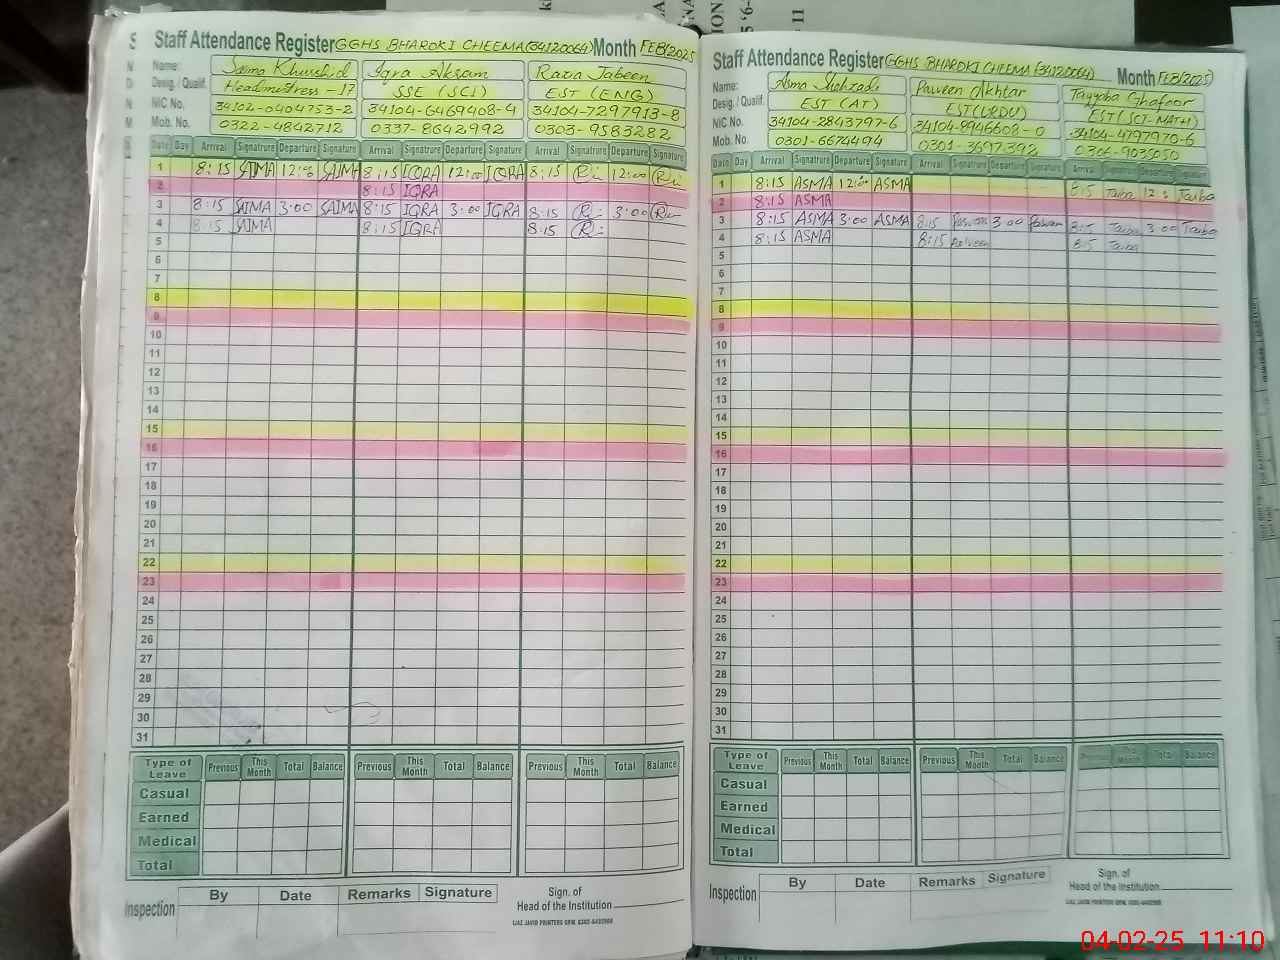 Staff Attendance Register GGHS BHAROKI CHEEMA (34120064) Month FEB/2025
Name: Saima Khurshid Iqra Akram Razia Jabeen
Desig. / Qualif. Headmistress - 17 SSE (SCI) EST (ENG)
NIC No. 34102-0404753-2 34104-6469408-4 34104-7297913-8
Mob. No. 0322-4842712 0337-8642992 0303-9583282
Date Day Arrival Signatrure Departure Signature Arrival Signatrure Departure Signature Arrival Signatrure Departure Signature
1 8:15 SAIMA 12:00 SAIMA 8:15 IQRA 12:00 IQRA 8:15 12:00
2 8:15 IQRA
3 8:15 SAIMA 3:00 SAIMA 8:15 IQRA 3:00 IQRA 8:15 3:00
4 8:15 SAIMA 8:15 IQRA 8:15
5
6
7
8
9
10
11
12
13
14
15
16
17
18
19
20
21
22
23
24
25
26
27
28
29
30
31
Type of Leave Previous This Month Total Balance Previous This Month Total Balance Previous This Month Total Balance
Casual
Earned
Medical
Total
Inspection By Date Remarks Signature Sign. of
Head of the Institution
Staff Attendance Register GGHS BHAROKI CHEEMA (34120064) Month FEB/2025
Name: Asma Shahzadi Parveen Akhtar Tayyaba Ghafoor
Desig. / Qualif. EST (AT) EST (URDU) EST (SCI-MATH)
NIC No. 34104-2843797-6 34104-8946608-0 34104-4797970-6
Mob. No. 0301-6674494 0301-3697392 0306-9035050
Date Day Arrival Signatrure Departure Signature Arrival Signatrure Departure Signature Arrival Signatrure Departure Signature
1 8:15 ASMA 12:00 ASMA 8:15 Taiba 12:00 Taiba
2 8:15 ASMA
3 8:15 ASMA 3:00 ASMA 8:15 Parveen 3:00 Parveen 8:15 Taiba 3:00 Taiba
4 8:15 ASMA 8:15 Parveen 8:15 Taiba
5
6
7
8
9
10
11
12
13
14
15
16
17
18
19
20
21
22
23
24
25
26
27
28
29
30
31
Type of Leave Previous This Month Total Balance Previous This Month Total Balance Previous This Month Total Balance
Casual
Earned
Medical
Total
Inspection By Date Remarks Signature Sign. of
Head of the Institution
04-02-25 11:10